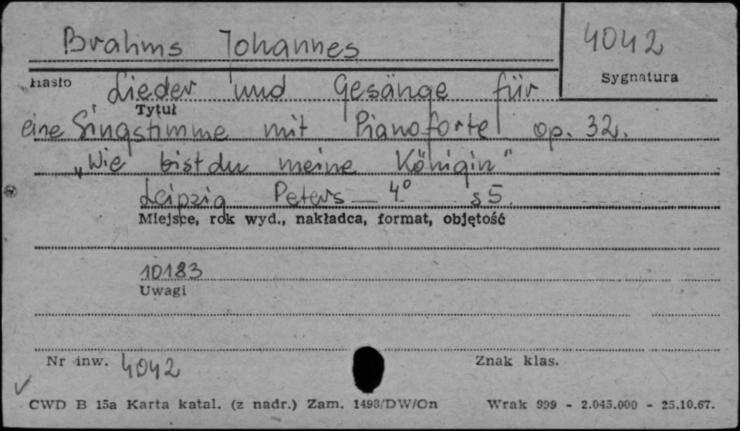 Brahms Johannes
4042
Hasło
Sygnatura
Lieder und Gesänge für
Tytuł
eine Singstimme mit Pianoforte op. 32.
„Wie bist du meine Königin"
Leipzig Peters 4° s 5.
Miejsce, rok wyd., nakładca, format, objętość
10183
Uwagi
Nr inw. 4042
Znak klas.
CWD B 15a Karta katal. (z nadr.) Zam. 1493/DW/On Wrak 999 - 2.045.000 - 25.10.67.